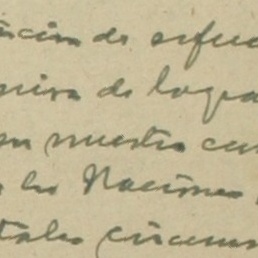 ación de esfue
mira de logra
en nuestro cu
las Naciones
tales circuns